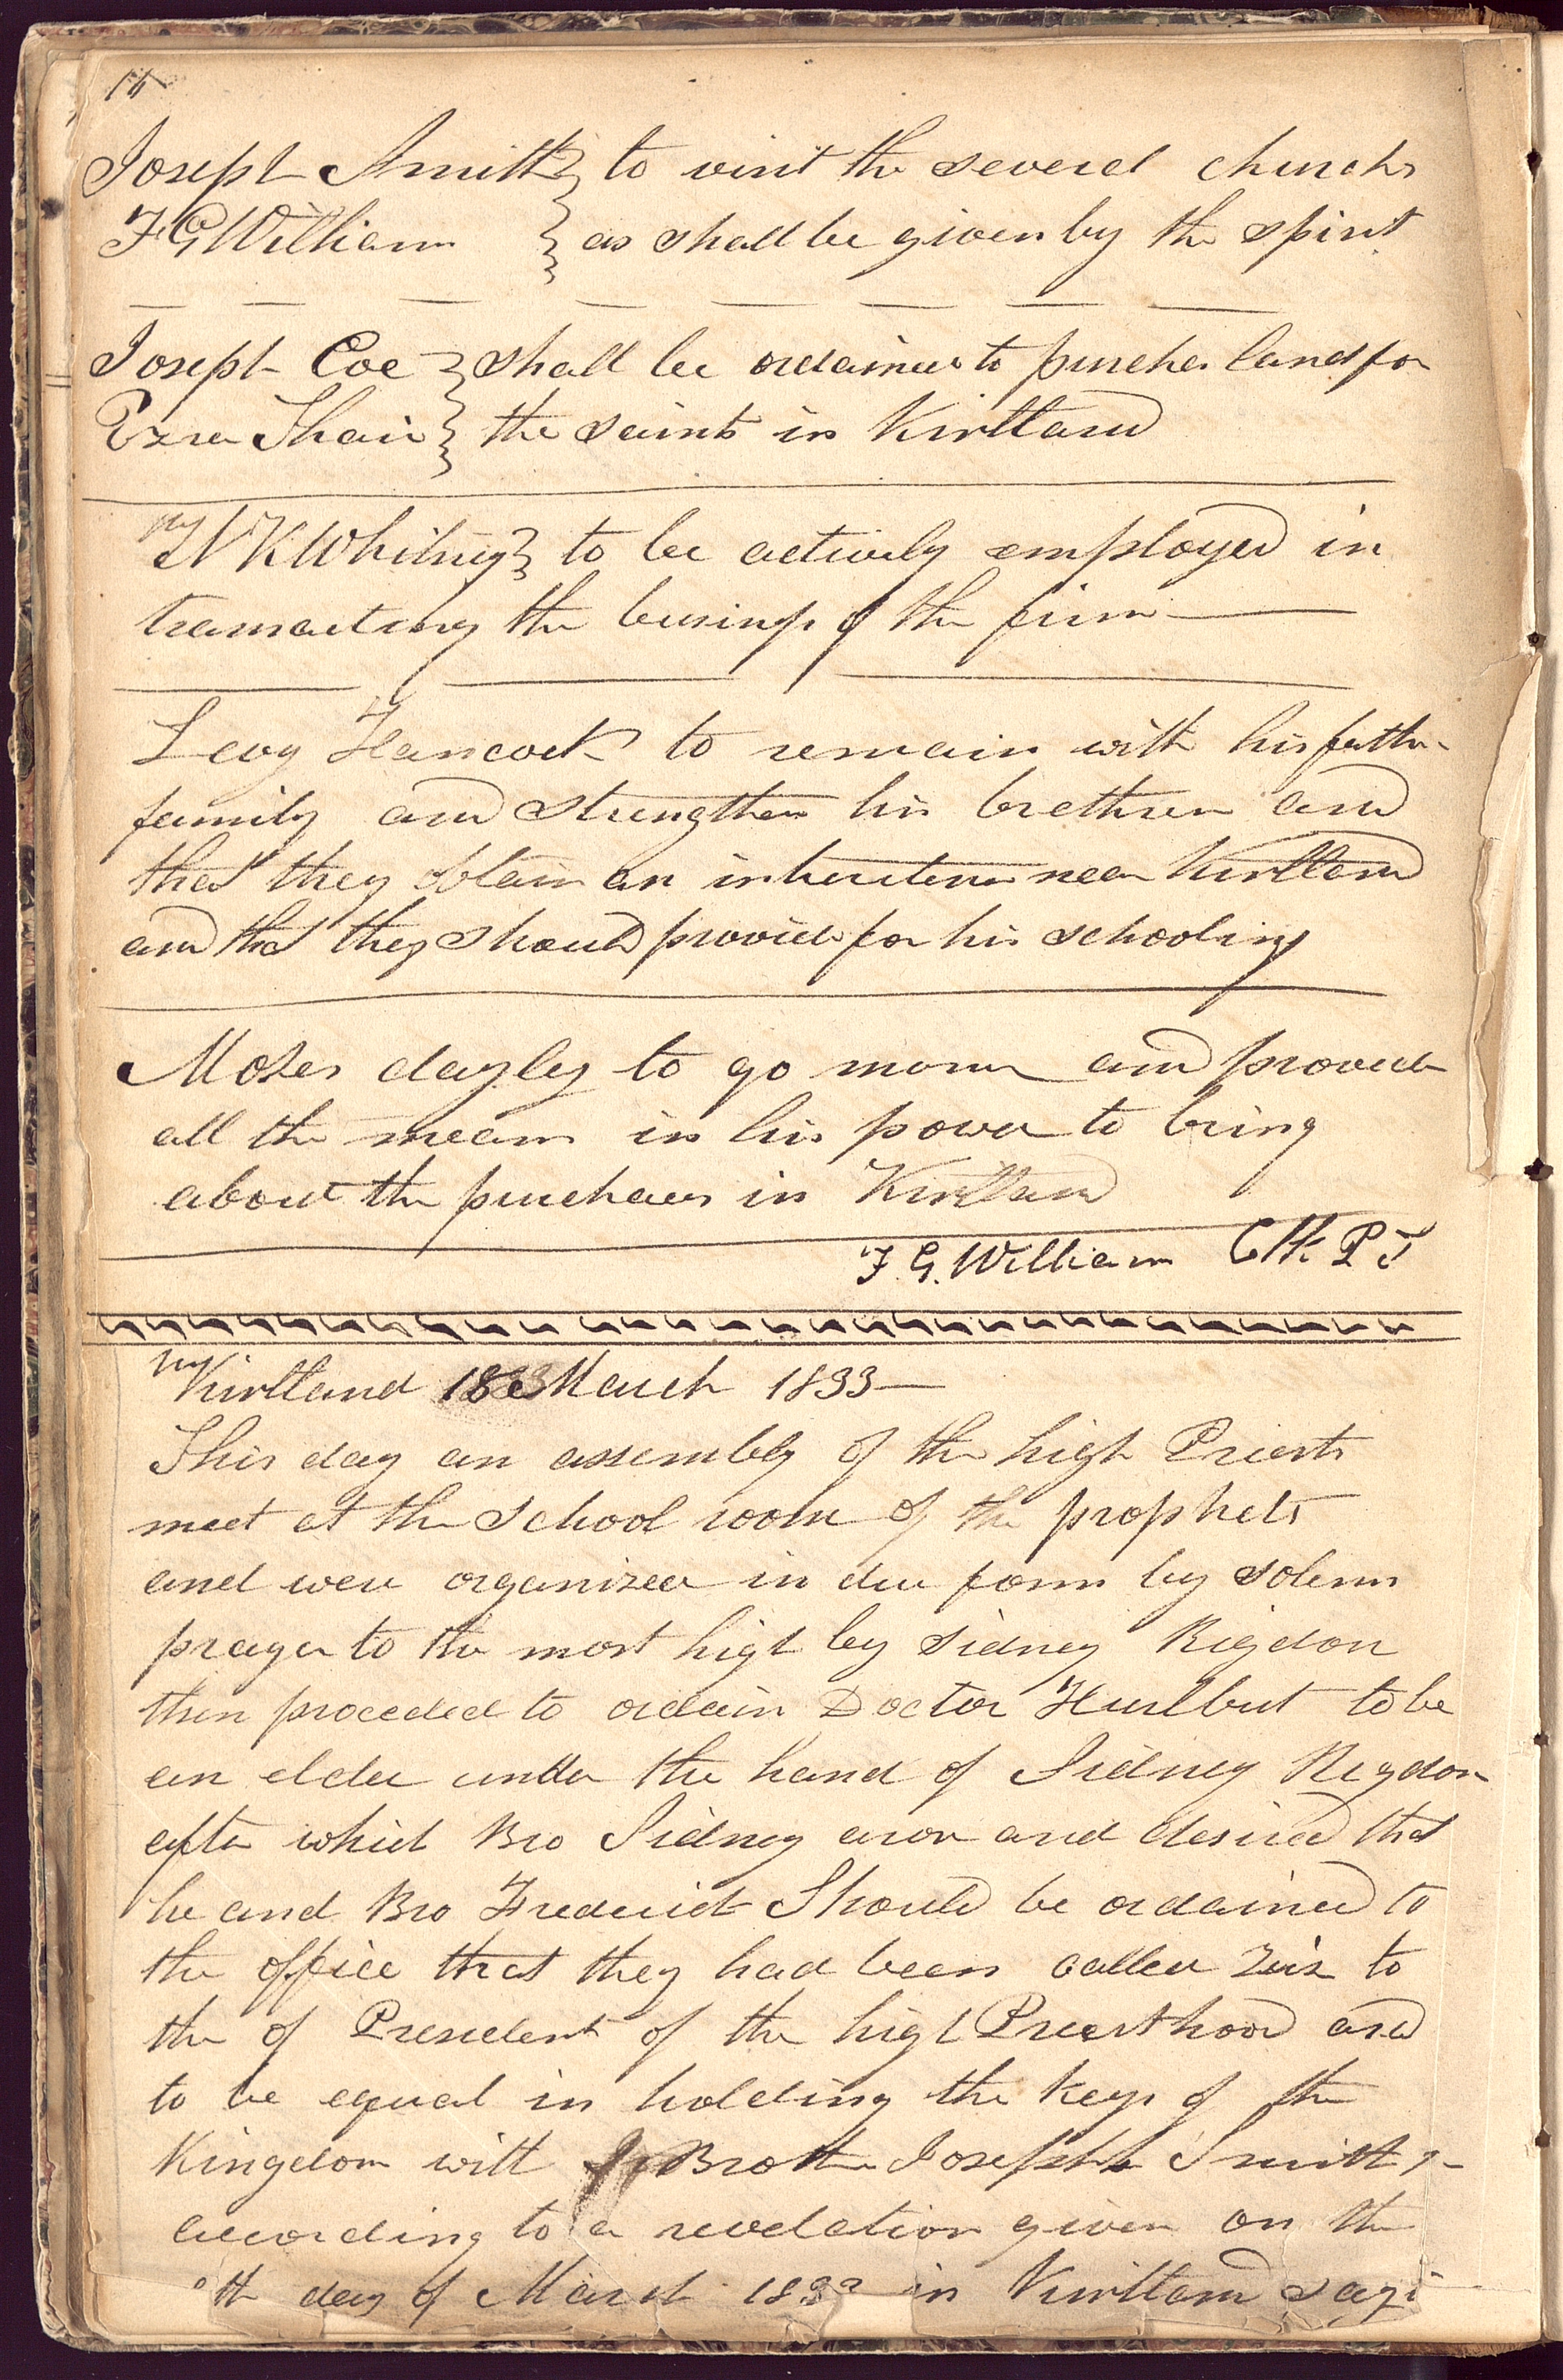 16
Joseph Smith } to visit the several churchs
F G William } as shall be given by the spirit
Joseph Coe } shall be ordained to purches land for
Ezra Thair } the saints in Kirtland
N K Whitney } to be actively employed in
transacting the business of the firm
Levy Hancock to remain with his father
family and strengthen his brethren and
that they obtain an inheritence near Kirtland
and that they should provide for his schooling
Moses dayley to go and provide
all the means in his power to bring
about the purchases in Kirtland
F. G. William Clk P T
Kirtland 18 March 1833—
This day an assembly of the high Priests
meet at the school room of the prophets
and were organized in due form by solemn
prayer to the most high by Sidney Rigdon
then proceded to ordain Doctor Hurlbut to be
an elder under the hand of Sidney Rigdon
after which Bro Sidney arose and desired that
he and Bro Frederick Should be ordained to
the office that they had been called viz to
the of President of the high Priesthood and
to be equal in holding the Keys of the
Kingdom with Brother Joseph Smith Jr
according to a revelation given on the
th day of March 1833 in Kirtland